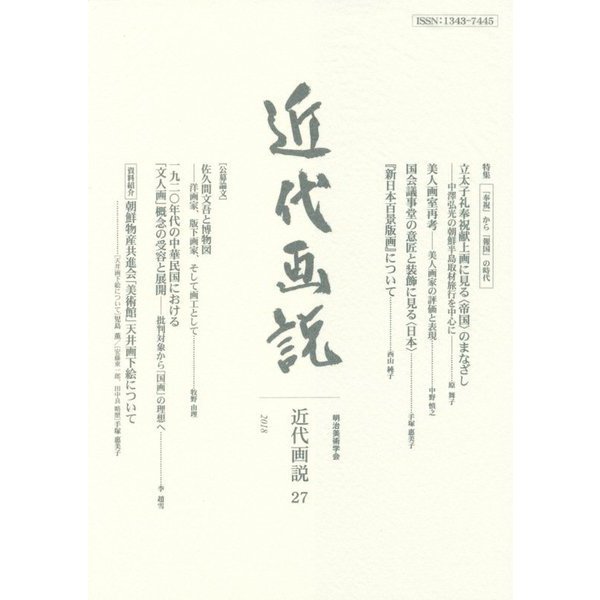 ISSN：1343-7445
特集　「奉祝」から「報国」の時代
立太子礼奉祝献上画に見る〈帝国〉のまなざし
――中澤弘光の朝鮮半島取材旅行を中心に――原　舞子
美人画室再考――美人画家の評価と表現…………中野　慎之
国会議事堂の意匠と装飾に見る〈日本〉…………手塚　恵美子
『新日本百景版画』について…………西山　純子
近代画説
明治美術学会
近代画説 27
2018
［公募論文］
佐久間文吾と博物図
――洋画家、版下画家、そして画工として…………牧野　由理
一九二〇年代の中華民国における
「文人画」概念の受容と展開――批判対象から「国画」の理想へ…………李　趙雪
資料紹介
朝鮮物産共進会「美術館」天井画下絵について
…………［天井画下絵について］児島　薫／［安藤東一郎、田中良 略歴］手塚　恵美子